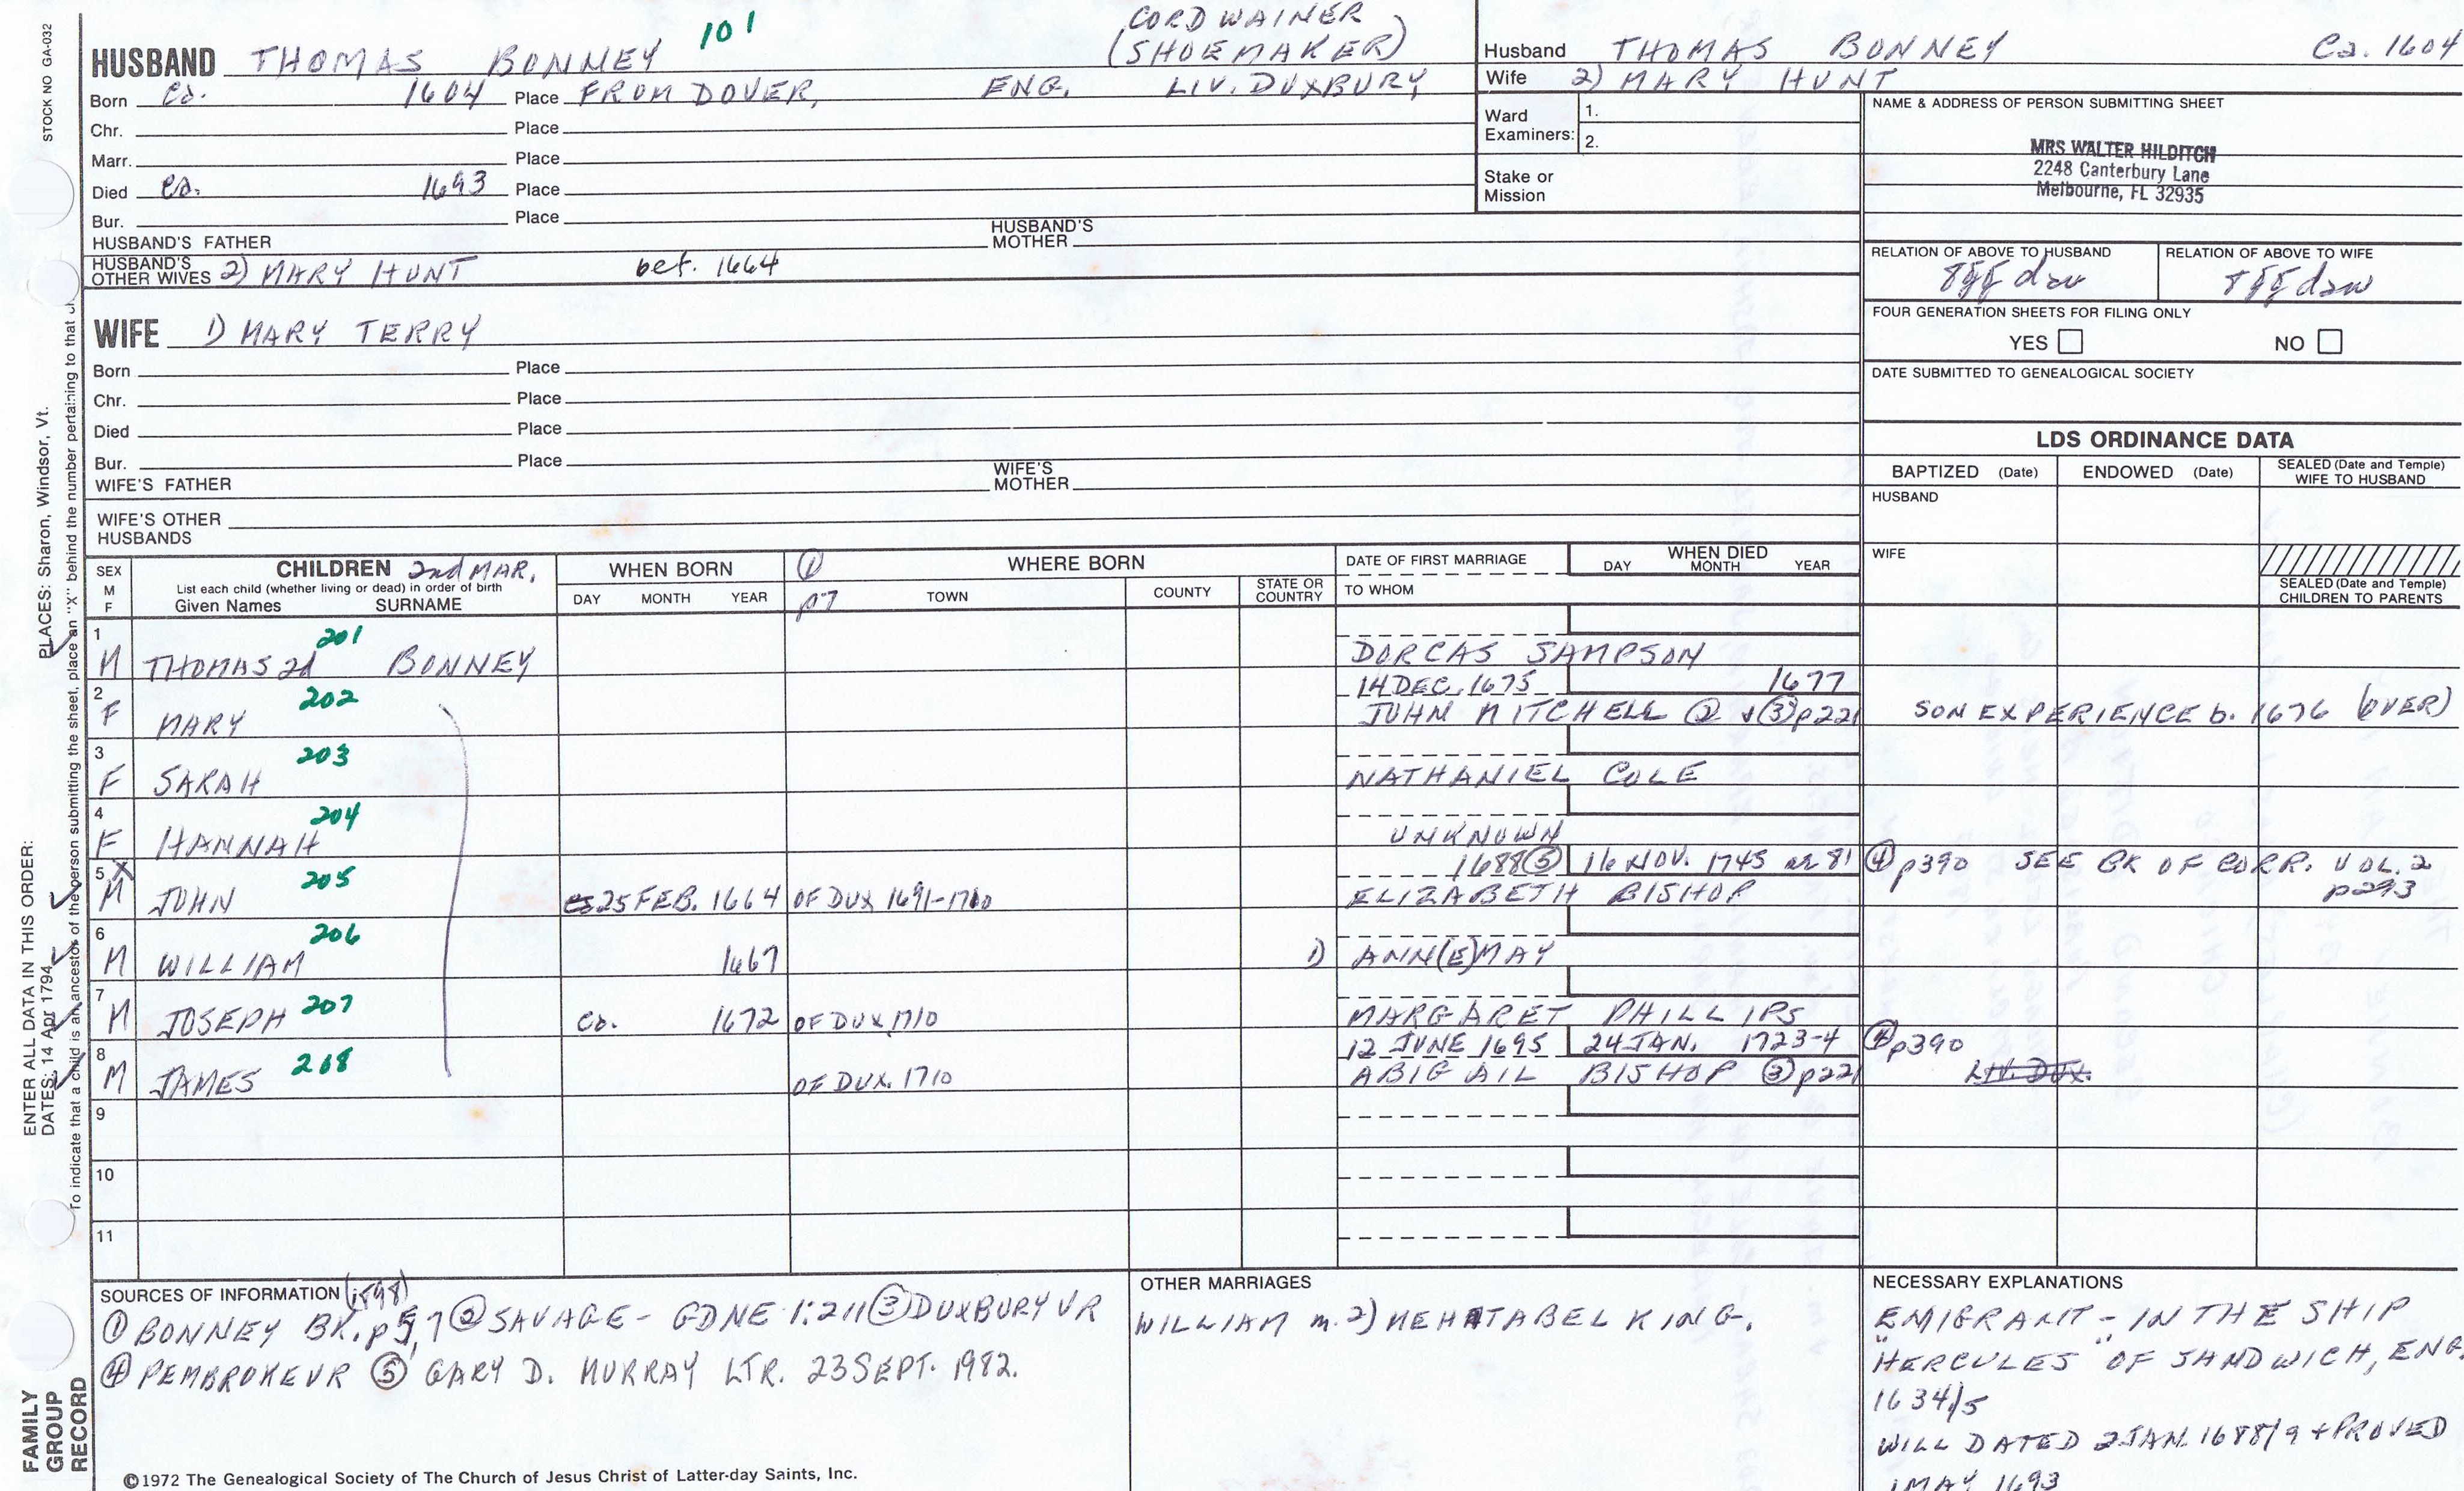 STOCK NO GA-032
101
CORDWAINER
(SHOEMAKER)
HUSBAND THOMAS BONNEY
Born ca. 1604 Place FROM DOVER, ENG. LIV. DUXBURY
Chr. Place
Marr. Place
Died ca. 1693 Place
Bur. Place
HUSBAND'S FATHER HUSBAND'S MOTHER
HUSBAND'S OTHER WIVES 2) MARY HUNT bef. 1664
Husband THOMAS BONNEY Ca. 1604
Wife 2) MARY HUNT
Ward Examiners: 1.
2.
Stake or Mission
NAME & ADDRESS OF PERSON SUBMITTING SHEET
MRS WALTER HILDITCH
2248 Canterbury Lane
Melbourne, FL 32935
RELATION OF ABOVE TO HUSBAND RELATION OF ABOVE TO WIFE
8gg dau 8gg dau
FOUR GENERATION SHEETS FOR FILING ONLY
YES NO
DATE SUBMITTED TO GENEALOGICAL SOCIETY
WIFE 1) MARY TERRY
Born Place
Chr. Place
Died Place
Bur. Place
WIFE'S FATHER WIFE'S MOTHER
WIFE'S OTHER HUSBANDS
LDS ORDINANCE DATA
BAPTIZED (Date) ENDOWED (Date) SEALED (Date and Temple) WIFE TO HUSBAND
HUSBAND
WIFE
SEALED (Date and Temple) CHILDREN TO PARENTS
SEX M F
CHILDREN 2nd MAR.
List each child (whether living or dead) in order of birth
Given Names SURNAME
WHEN BORN
DAY MONTH YEAR
① p7
WHERE BORN
TOWN COUNTY STATE OR COUNTRY
DATE OF FIRST MARRIAGE
TO WHOM
WHEN DIED
DAY MONTH YEAR
1 201
M THOMAS 2d BONNEY DORCAS SAMPSON
2 202 14 DEC. 1675 1677
F MARY JOHN MITCHELL ② + ③ p221 SON EXPERIENCE b. 1676 (OVER)
3 203
F SARAH NATHANIEL COLE
4 204
F HANNAH UNKNOWN
5 X 205 1688 ⑤ 16 NOV. 1745 ae 81 ④ p390 SEE BK OF CORR. VOL. 2 p293
M JOHN 25 FEB. 1664 OF DUX 1691-1710 ELIZABETH BISHOP
6 206
M WILLIAM 1667 1) ANN(E) MAY
7 207
M JOSEPH ca. 1672 OF DUX 1710 MARGARET PHILLIPS
8 208 12 JUNE 1695 24 JAN. 1723-4 ④ p390
M JAMES OF DUX. 1710 ABIGAIL BISHOP ③ p221 LIV. DUX.
9
10
11
SOURCES OF INFORMATION (1898)
① BONNEY BK. p 5, 7 ② SAVAGE - GDNE 1:211 ③ DUXBURY VR
④ PEMBROKE VR ⑤ GARY D. MURRAY LTR. 23 SEPT. 1982.
OTHER MARRIAGES
WILLIAM m. 2) MEHITABEL KING.
NECESSARY EXPLANATIONS
EMIGRANT - IN THE SHIP
"HERCULES" OF SANDWICH, ENG.
1634/5
WILL DATED 2 JAN. 1688/9 + PROVED
1 MAY 1693
©1972 The Genealogical Society of The Church of Jesus Christ of Latter-day Saints, Inc.
FAMILY
GROUP
RECORD
ENTER ALL DATA IN THIS ORDER:
DATES: 14 Apr 1794
PLACES: Sharon, Windsor, Vt.
To indicate that a child is an ancestor of the person submitting the sheet, place an "X" behind the number pertaining to that